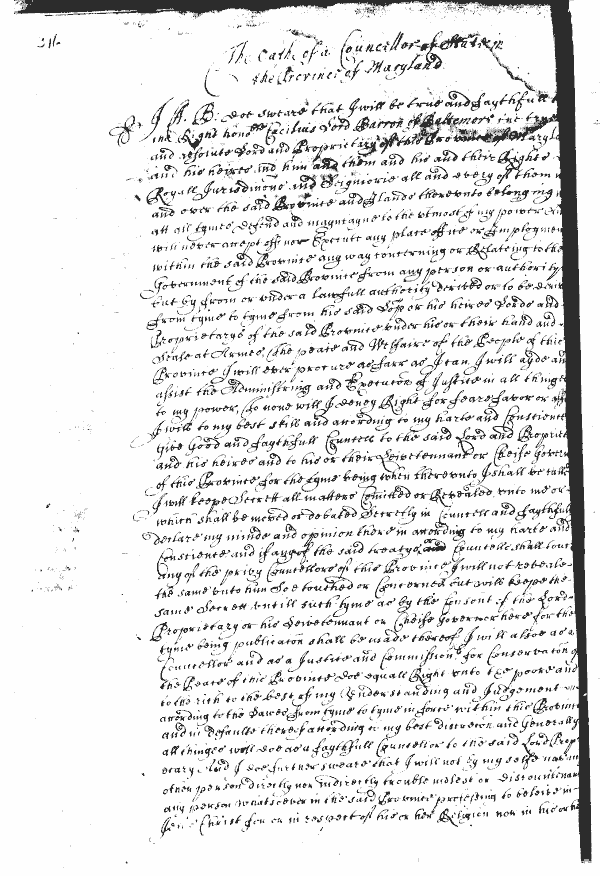 216
The Oath of a Councellor of State in
the Province of Maryland
I A. B. doe sweare that I will be true and faythfull
the Right hono:ble Cecilius Lord Barron of Baltemore the true
and absolute Lord and Proprietary of this Province of Maryla
and his heires and him and them and his and their Rights
Royall Jurisdictions and Signiorie all and every of them
and over the said Province and Ilands thereunto belonging
att all tymes defend and mayntayne to the utmost of my power
will never accept off nor Execute any place office or Employmen
within the said Province any way concerning or Relateing to the
Government of the said Province from any person or authority
but by from or under a lawfull authority derived or to be deriv
from tyme to tyme from his said Lopp or his heires Lords and
Proprietarys of the said Province under his or their hand and
Seale at Armes, The peace and Welfaire of the People of this
Province I will ever procure as farr as I can, I will ayde and
assist the Administring and Execution of Justice in all things
to my power, To none will I deney Right for feare favor or
I will to my best skill and according to my harte and Conscience
Give Good and faythfull Councell to the said Lord and Propriet
and his heires and to his or their Leivetennant or Cheife Govern
of this Province for the tyme being when thereunto I shall be called
I will keepe Secrett all matters Comitted or Revealed unto me or
which shall be moved or debated Secretly in Councell and faythfull
declare my minde and opinion therein according to my harte and
Conscience and if any of the said treatys and Councells shall touc
any of the privy Councellors of this Province I will not reveale
the same unto him Soe touched or Concerned but will keepe the
same Secrett untill such tyme as by the Consent of the Lord
Proprietary or his Leivetennant or Cheife Governor here for the
tyme being publication shall be made thereof I will alsoe as a
Councellor and as a Justice and Commissioner for Conservation of
the Peace of this Province doe equall Right unto the poore and
to the rich to the best of my Understanding and Judgement
according to the Lawes from tyme to tyme in force within this Province
and in default thereof according to my best discretion and Generally
all things will doe as a faythfull Councellor to the said Lord Prop
etary And I doe further sweare that I will not by my selfe nor any
other person directly nor indirectly trouble molest or discountenanc
any person whatsoever in the said Province professing to beleive in
Jesus Christ for or in respect of his or her Religion nor in his or he